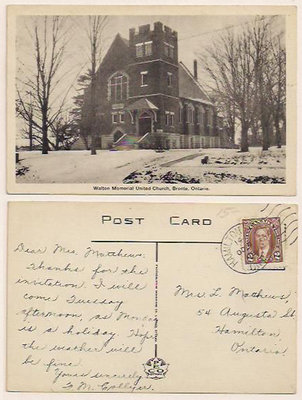 Walton Memorial United Church, Bronte, Ontario.
POST CARD
Dear Mrs. Matthews:
Thanks for the
invitation. I will
come Tuesday
afternoon, as Monday
is a holiday. Hope
the weather will
be fine.
Yours sincerely
Mrs. L. Mathews,
54 Augusta St
Hamilton,
Ontario.
HAMILTON